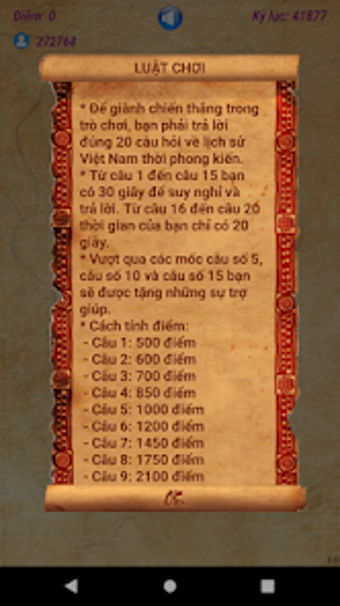 Điểm: 0
Kỷ lục: 41877
272768
LUẬT CHƠI
* Để giành chiến thắng trong
trò chơi, bạn phải trả lời
đúng 20 câu hỏi về lịch sử
Việt Nam thời phong kiến.
* Từ câu 1 đến câu 15 bạn
có 30 giây để suy nghỉ và
trả lời. Từ câu 16 đến câu 20
thời gian của bạn chỉ có 20
giây.
* Vượt qua các mốc câu số 5,
câu số 10 và câu số 15 bạn
sẽ được tặng những sự trợ
giúp.
* Cách tính điểm:
- Câu 1: 500 điểm
- Câu 2: 600 điểm
- Câu 3: 700 điểm
- Câu 4: 850 điểm
- Câu 5: 1000 điểm
- Câu 6: 1200 điểm
- Câu 7: 1450 điểm
- Câu 8: 1750 điểm
- Câu 9: 2100 điểm